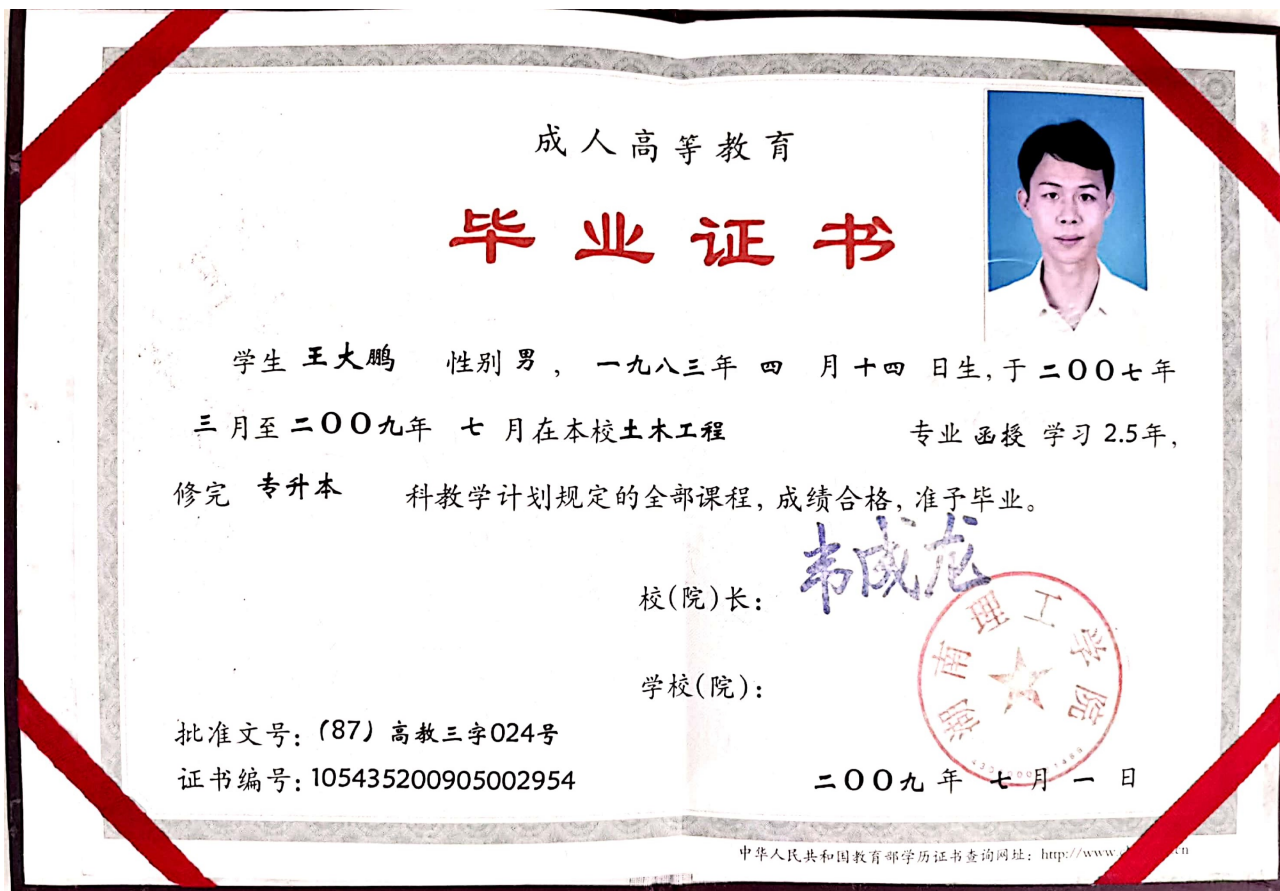 成人高等教育
毕业证书
学生 王大鹏 性别 男， 一九八三年 四 月 十四 日生，于 二〇〇七年
三月至 二〇〇九年 七 月在本校土木工程 专业 函授 学习 2.5年，
修完 专升本 科教学计划规定的全部课程，成绩合格，准予毕业。
校(院)长： 韦成龙
学校(院)：
湖南 工学院
批准文号：(87) 高教三字024号
证书编号：105435200905002954
二〇〇九 年 七 月 一 日
中华人民共和国教育部学历证书查询网址：http://www.